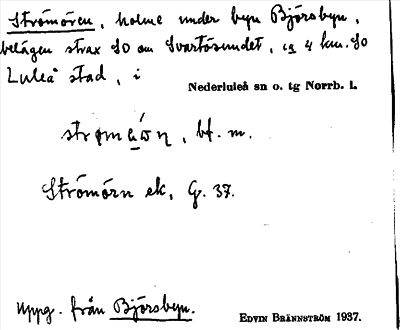 Strömören, holme under byn Björsbyn,
belägen strax SO om Svartösundet, ca 4 km. SO
Luleå stad, i
Nederluleå sn o. tg Norrb. l.
bf. m.
Strömörn ek, G. 37.
uppg. från Björsbyn.
EDVIN BRÄNNSTRÖM 1937.